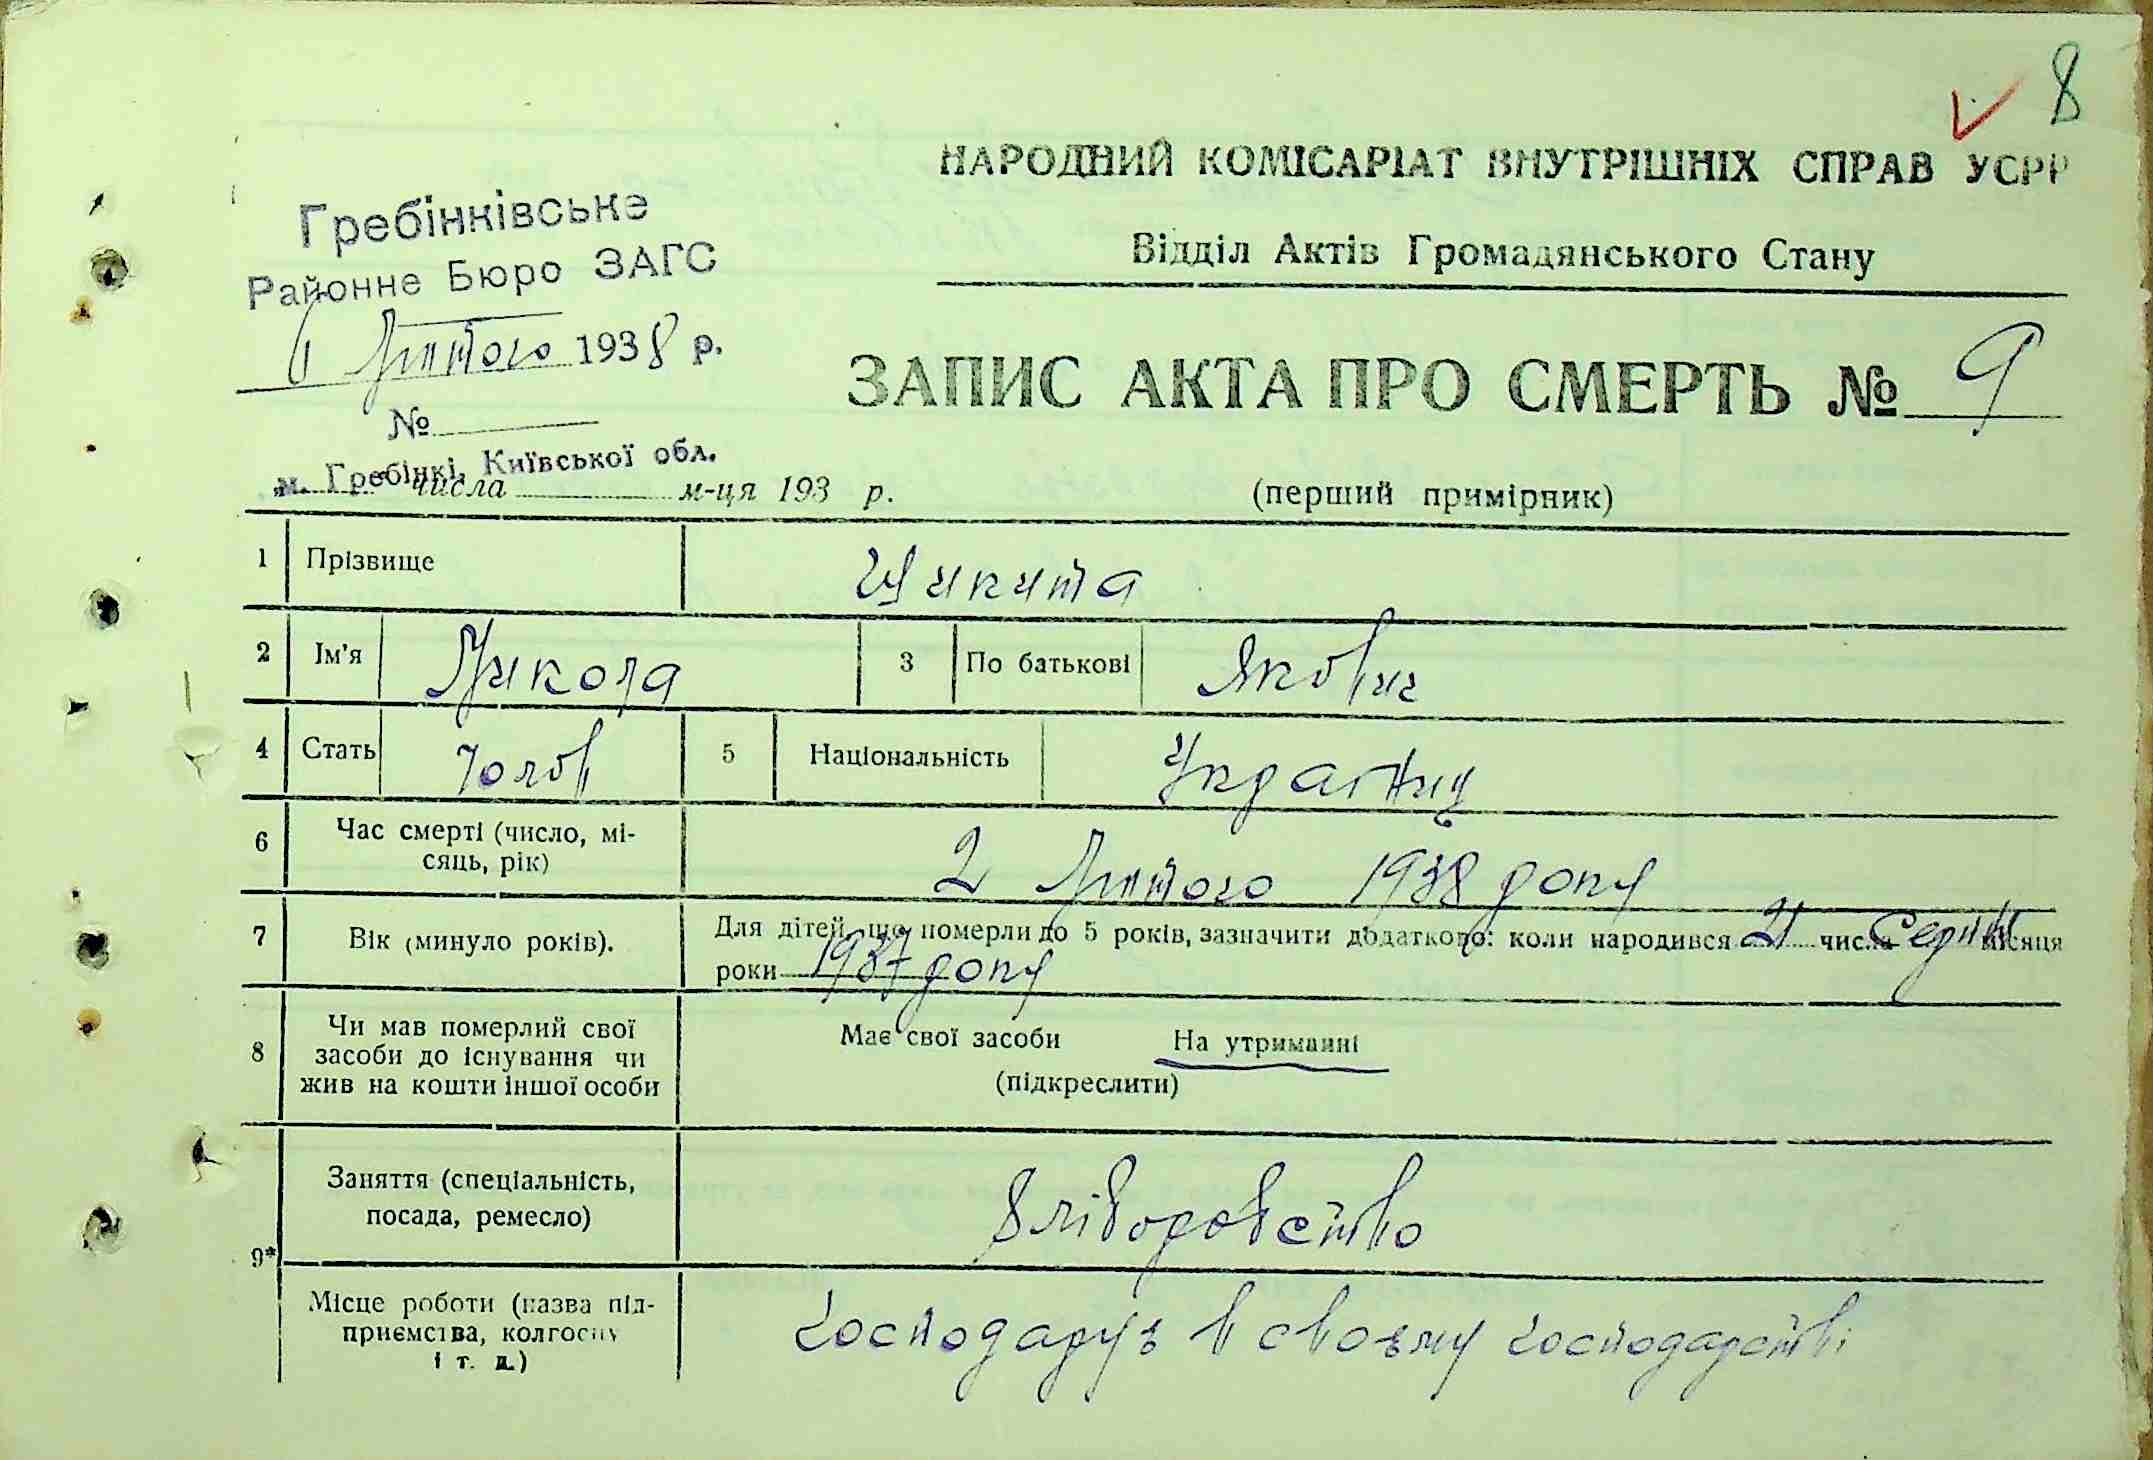 8
НАРОДНИЙ КОМІСАРІАТ ВНУТРІШНІХ СПРАВ УСРР
Відділ Актів Громадянського Стану
Гребінківське
Районне Бюро ЗАГС
6 Лютого 1938 р.
№
м. Гребінкі, Київської обл.
числа м-ця 193 р.
ЗАПИС АКТА ПРО СМЕРТЬ № 9
(перший примірник)
1 Прізвище Цикита
2 Ім'я Микола 3 По батькові Якович
4 Стать чолов 5 Національність Українец
6 Час смерті (число, мі-
сяць, рік) 2 Лютого 1938 року
7 Вік (минуло років). Для дітей, що померли до 5 років, зазначити додатково: коли народився 21 числа Серпня місяця
роки 1937 року
8 Чи мав померлий свої
засоби до існування чи
жив на кошти іншої особи
Має свої засоби На утриманні
(підкреслити)
9* Заняття (спеціальність,
посада, ремесло) Хліборобство
Місце роботи (назва під-
приємства, колгоспу
і т. д.) Господарує в своєму господарстві